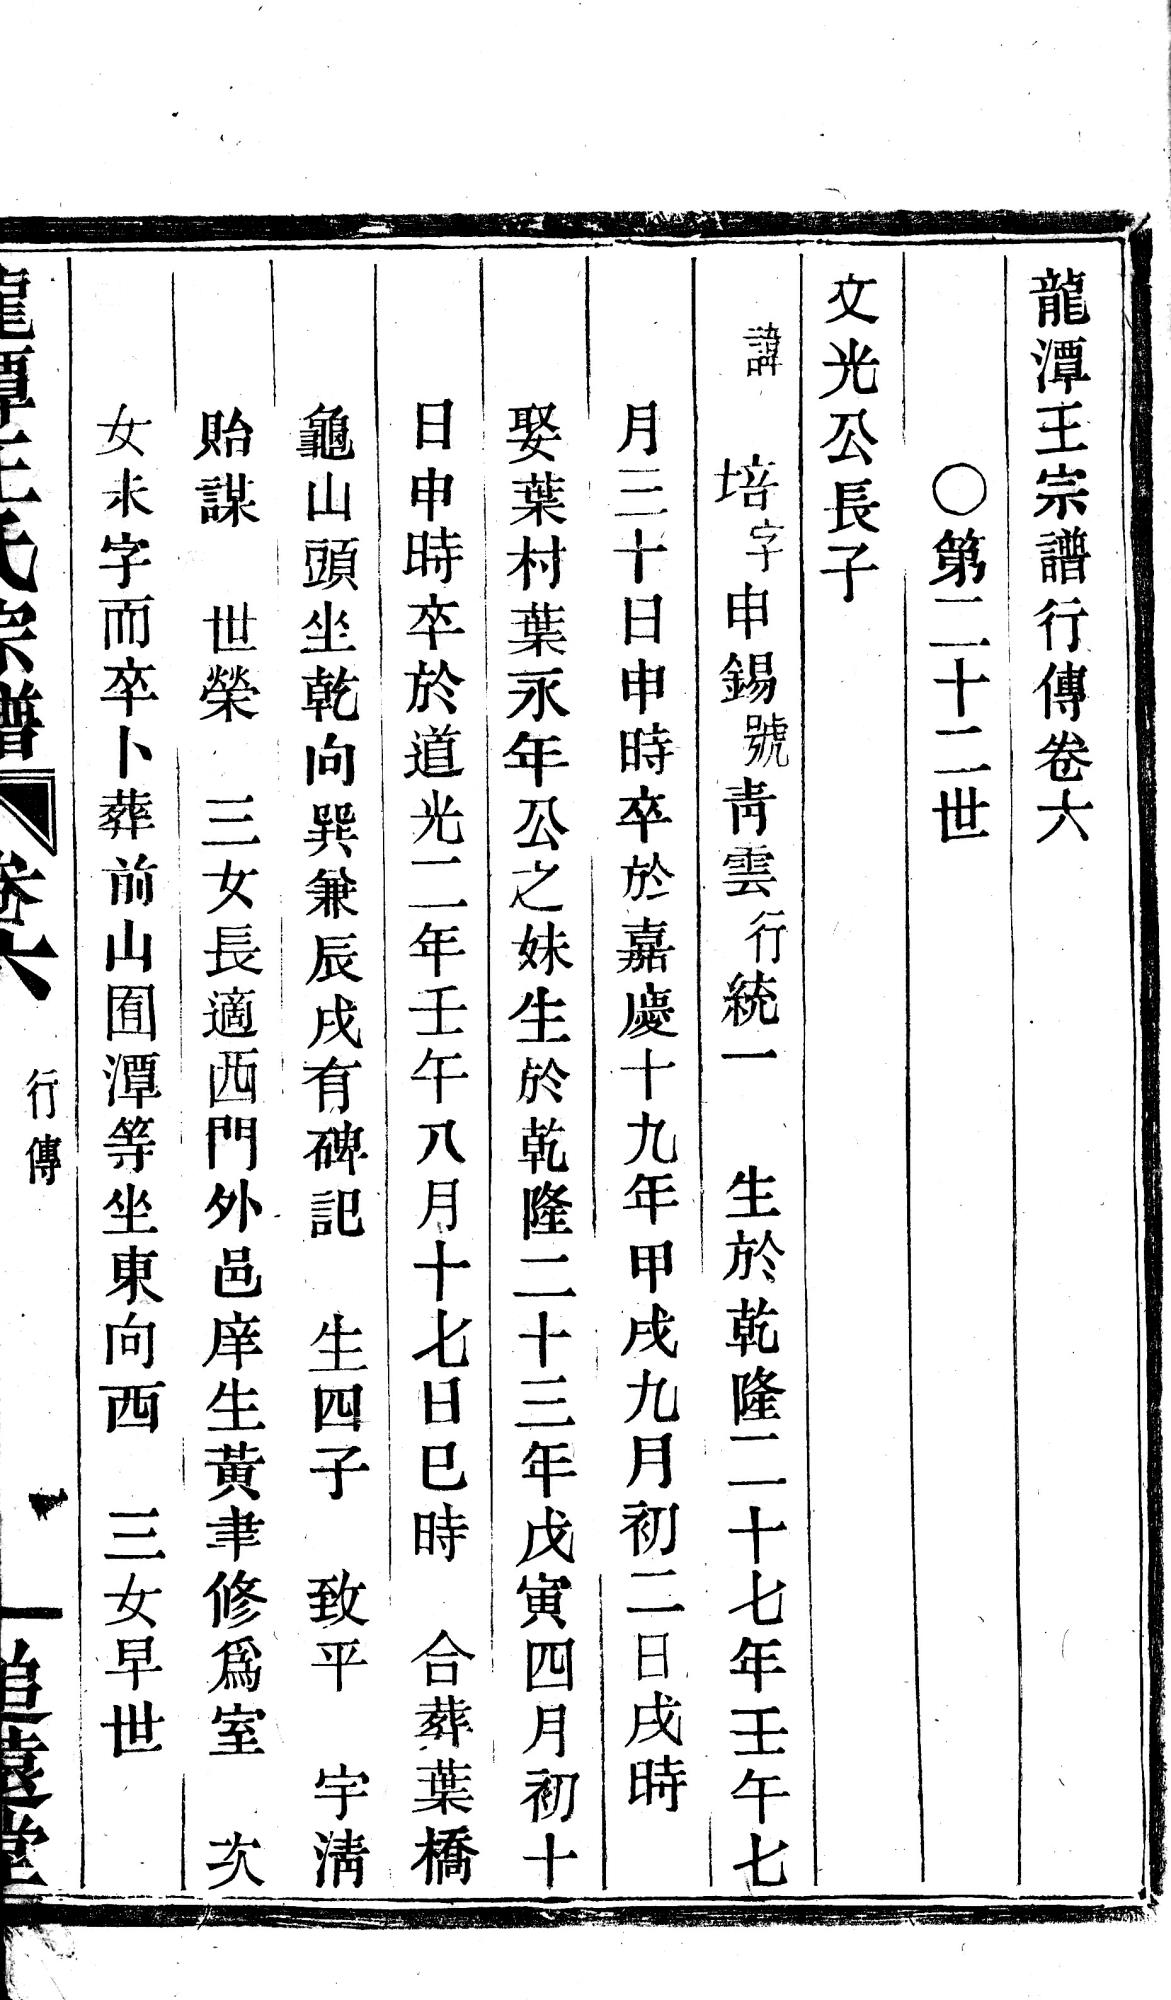 龍潭王宗譜行傳卷六
〇第二十二世
文光公長子
諱 培字申錫號靑雲行統一 生於乾隆二十七年壬午七
月三十日申時卒於嘉慶十九年甲戌九月初二日戌時
娶葉村葉永年公之妹生於乾隆二十三年戊寅四月初十
日申時卒於道光二年壬午八月十七日巳時 合葬葉橋
龜山頭坐乾向巽兼辰戌有碑記 生四子 致平 宇淸
貽謀 世榮 三女長適西門外邑庠生黃聿修爲室 次
女未字而卒卜葬前山囿潭等坐東向西 三女早世
龍潭王氏宗譜 卷六 行傳 一 追遠堂